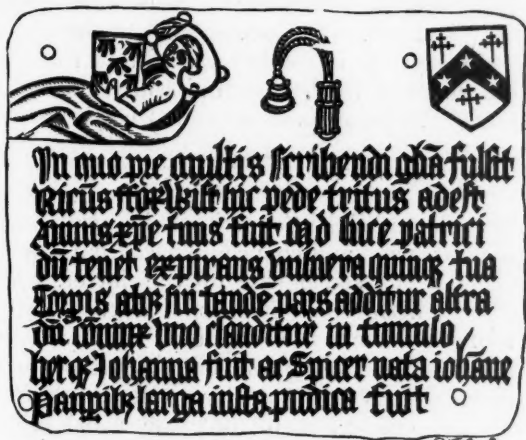 In quo pre multis scribendi gl̄ia fulsit
Ricūs ffoxwist hic pede tritus adest
Annus xp̄e tuus fuit M d luce patrici
dū tenet expirans vulnera quinqꝫ tua
Corpis atqꝫ sui tandē pars additur altra
dū cōiunx vno clauditur in tumulo
hecqꝫ Johanna fuit ac Spicer nata iohāne
Paupibꝫ larga iusta pudica fuit